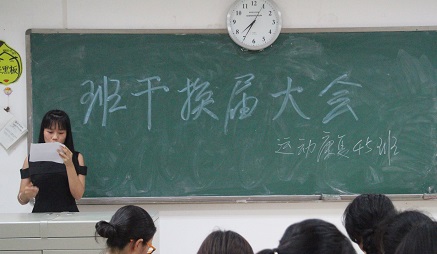 班干换届大会
运动康复45班